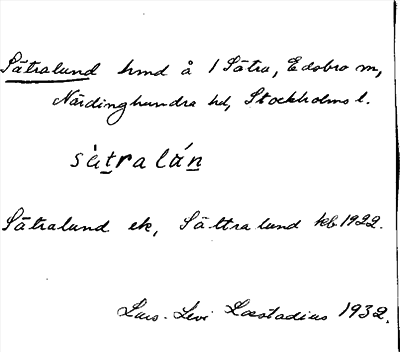 Sätralund hmd å 1 Sätra, Edsbro sn,
Närdinghundra hd, Stockholms l.
sàtralán
Sätralund ek, Sättralund kb 1922.
Lars-Levi Læstadius 1932.